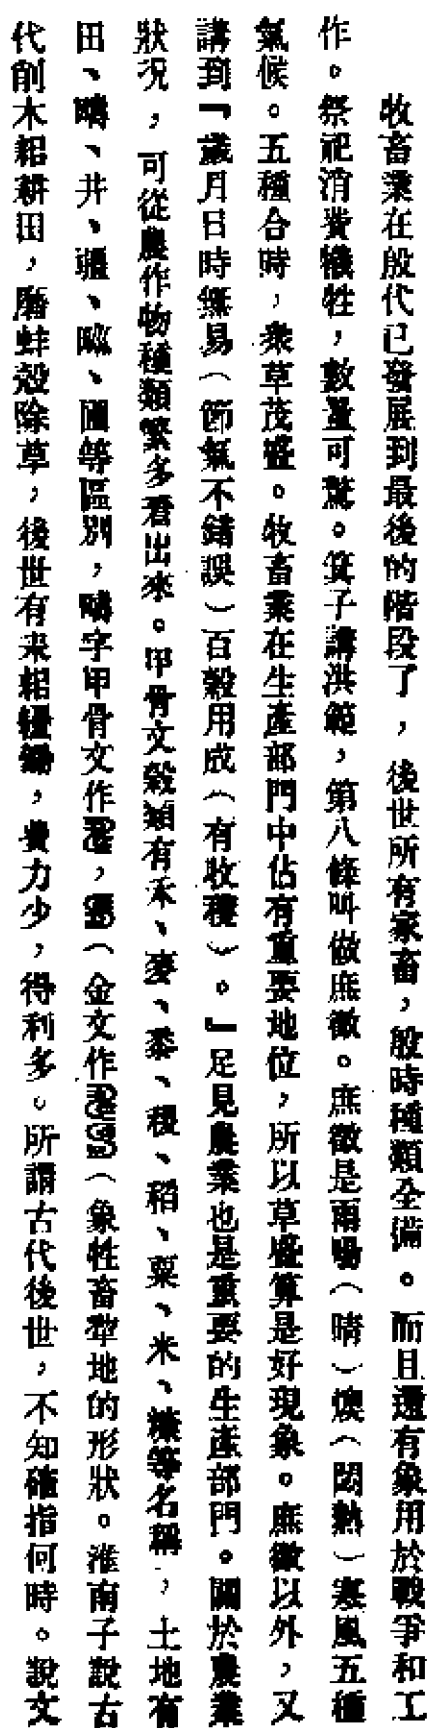 牧畜業在殷代已發展到最後的階段了，後世所有家畜，殷時種類全備。而且還有象用於戰爭和工
作。祭祀消費犧牲，數量可驚。箕子講洪範，第八條叫做庶徵。庶徵是雨暘（晴）燠（悶熱）寒風五種
氣候。五種合時，衆草茂盛。牧畜業在生產部門中佔有重要地位，所以草盛算是好現象。庶徵以外，又
講到『歲月日時無易（節氣不錯誤）百穀用成（有收穫）。』足見農業也是重要的生產部門。關於農業
狀況，可從農作物種類繁多看出來。甲骨文穀類有禾、麥、黍、稷、稻、粟、米、穅等名稱，土地有
田、疇、井、疆、甽、圃等區別，疇字甲骨文作，（金文作（象牲畜犂地的形狀。淮南子說古
代削木耜耕田，磨蚌殼除草，後世有耒耜耰鋤，費力少，得利多。所謂古代後世，不知確指何時。說文